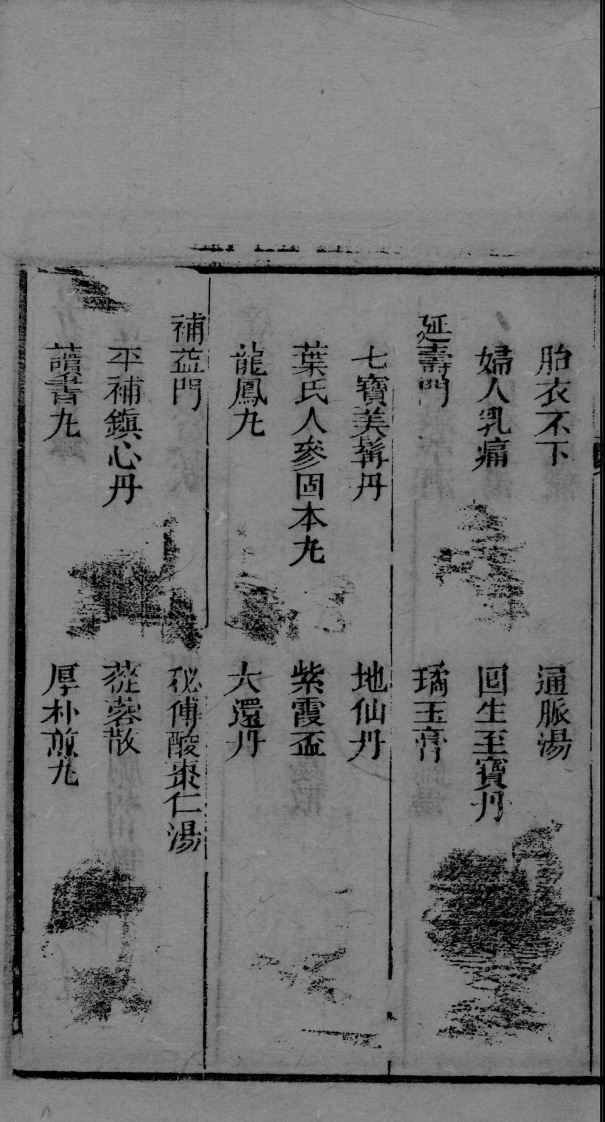 胎衣不下　通脈湯
婦人乳痛　回生至寶丹
延壽門　璚玉膏
七寶美髯丹　地仙丹
葉氏人參固本丸　紫霞盃
龍鳳丸　大還丹
補益門　秘傳酸棗仁湯
平補鎮心丹　蓯蓉散
讀書丸　厚朴煎丸